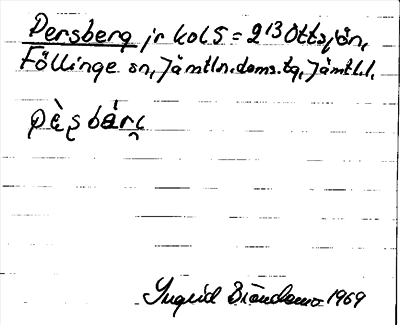 Persberg jr kol 5 = 2¹³ Ottsjön,
Föllinge sn, Jämtln. doms. tg, Jämtl. l.
pèsbárɩ̯
Ingrid 1969